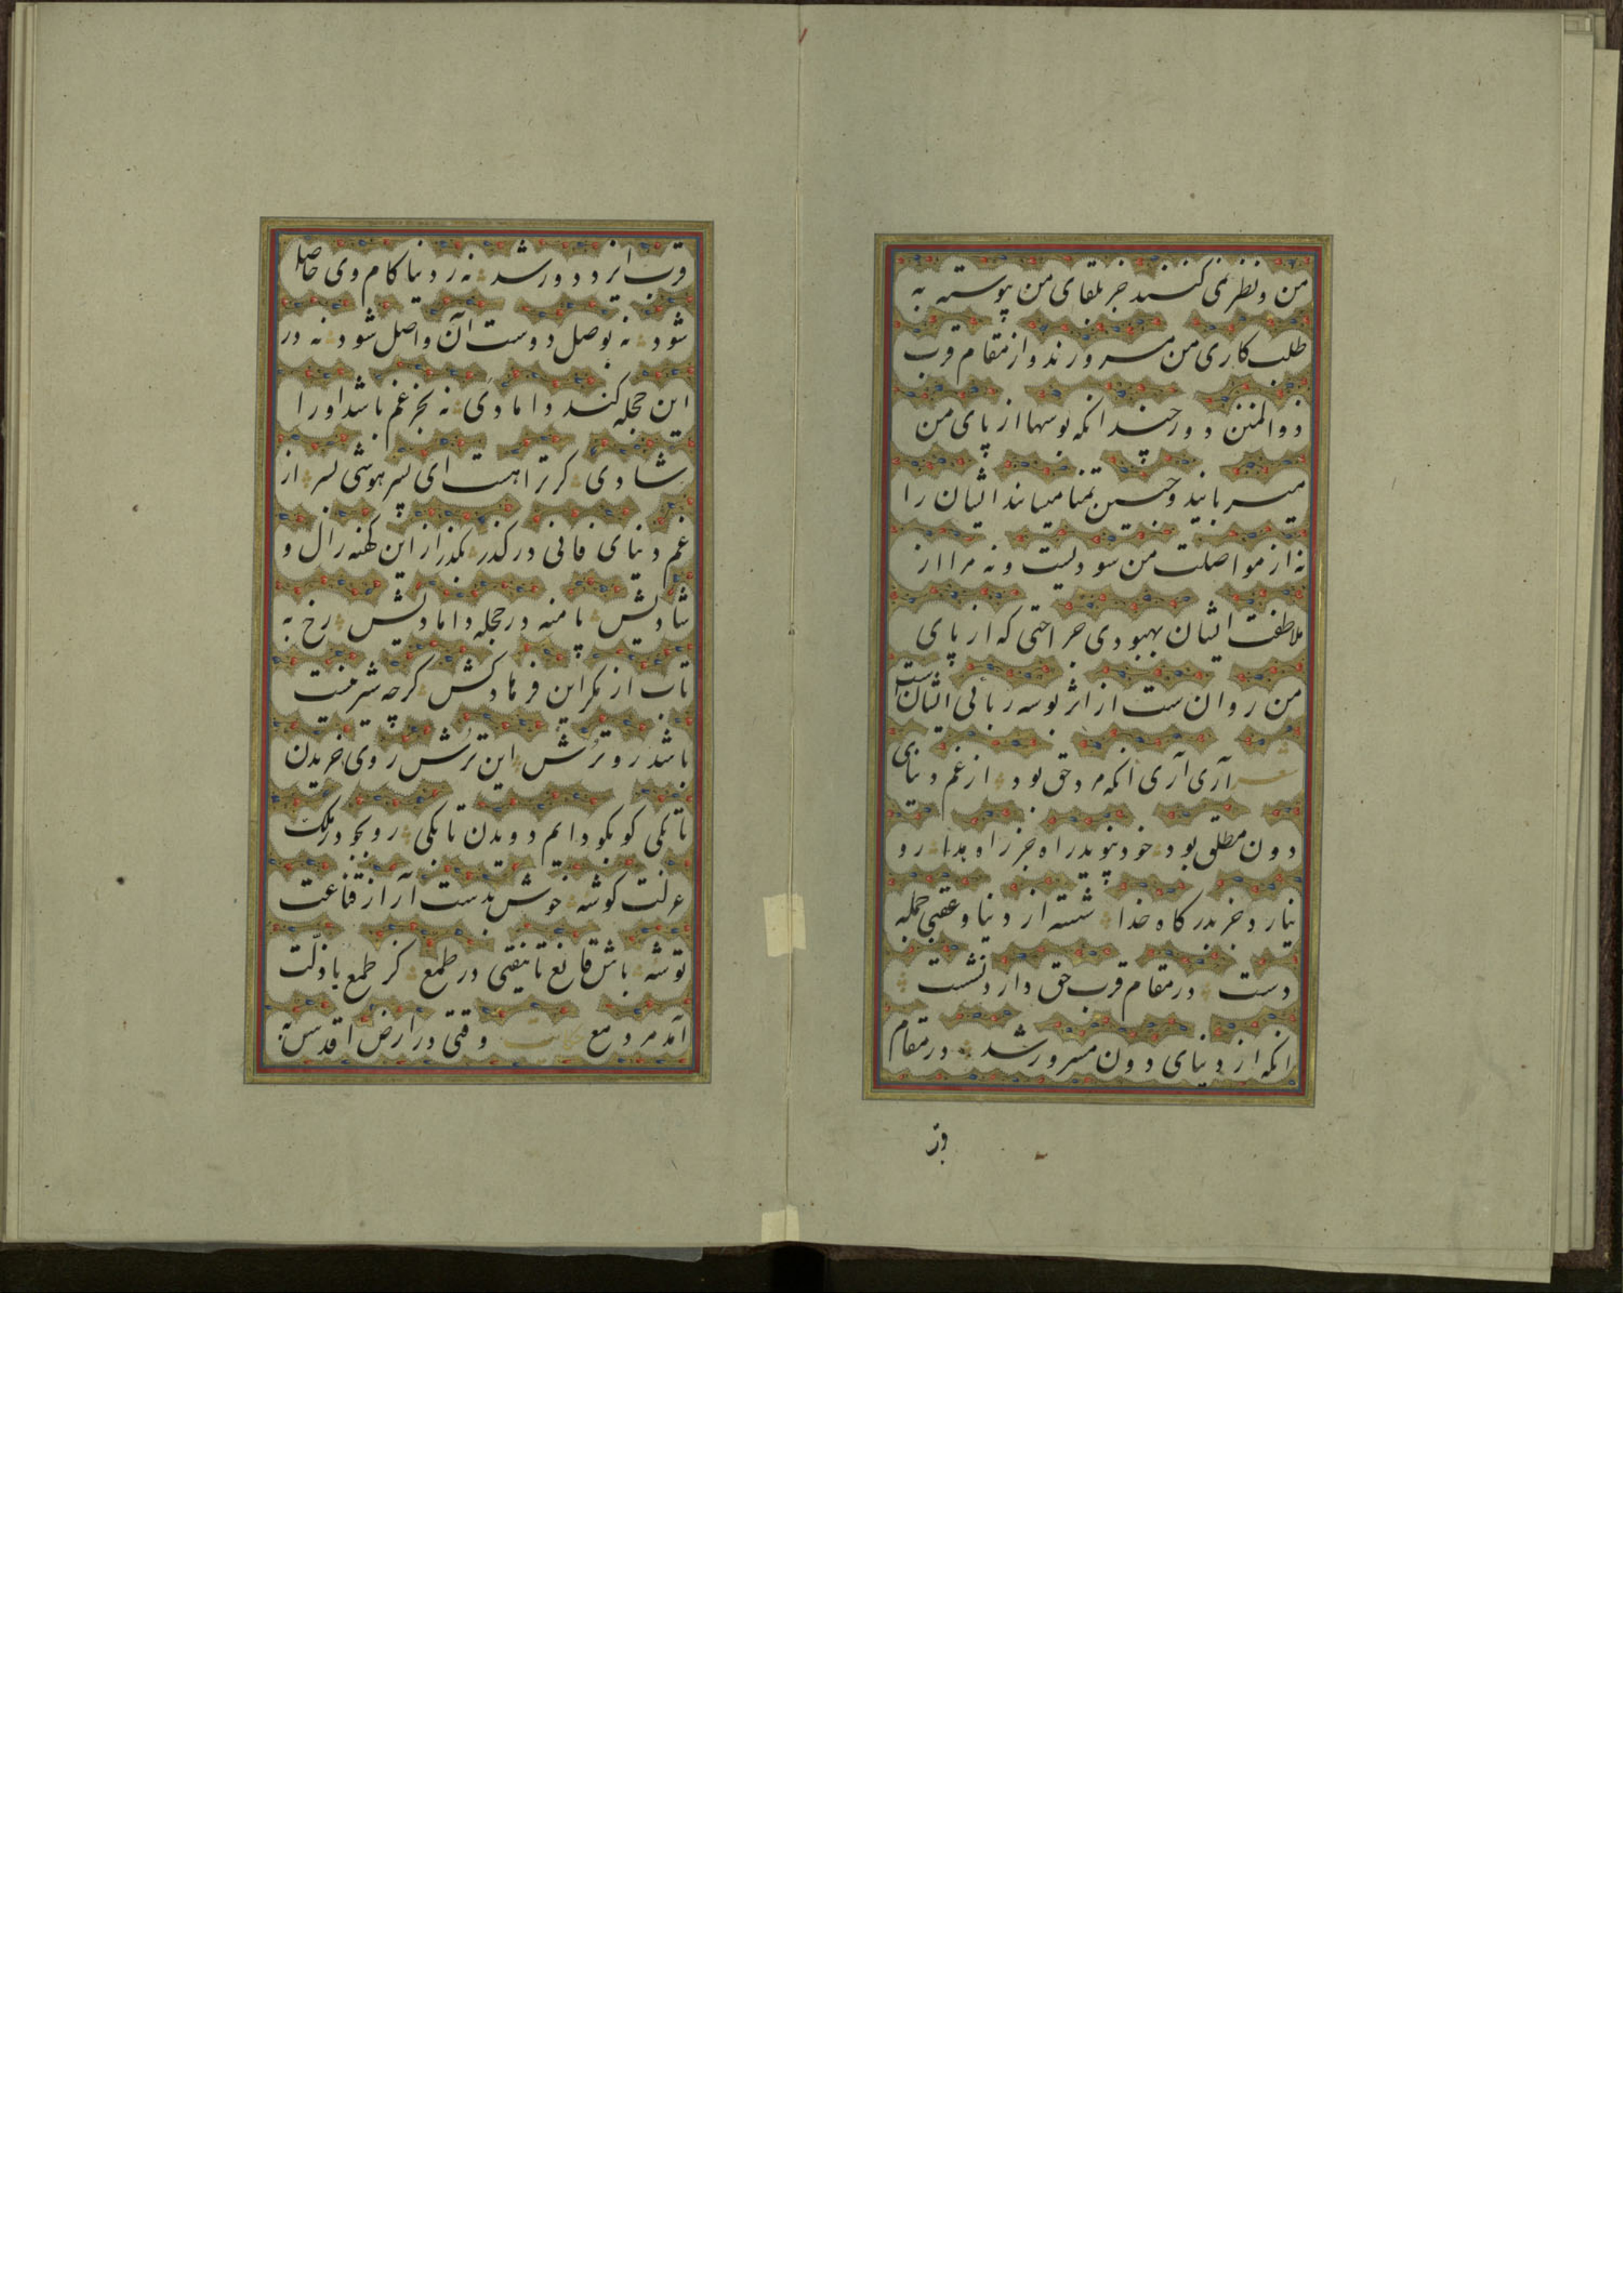 من و نظر نمی کنند جز بلقای من پیوسته به
طلب کاری من مسرورند و از مقام قرب
ذوالمنن دور چند انکه بوسها از پای من
میربایند و چنین تمنا میباند ایشان را
نه از مواصلت من سودیست و نه مرا از
ملاطفت ایشان بهبودی جراحتی که از پای
من روان ست از اثر بوسه ربائی ایشان است
شعر آری آری انکه مرد حق بود از غم دنیای
دون مطلق بود خود نپوید راه جز راه هدا رو
نیارد جز بدرگاه خدا شسته از دنیا و عقبی جمله
دست در مقام قرب حق دارد نشست
انکه از دنیای دون مسرور شد در مقام
قرب
قرب ایزد دور شد نه ز دنیا کام وی حاصل
شود نه بوصل دوست آن واصل شود نه در
این حجله کند دامادی نه بجز غم باشد او را
شادی کر ترا هست ای پسر هوشی بسر از
غم دنیای فانی در کذر بکذر از این کهنه زال و
شادیش پا منه در حجله دامادیش رخ به
تاب از مکر این فرهاد کش کرچه شیرینست
باشد رو ترش این ترش روی خریدن
تا بکی کو بکو دایم دویدن تا بکی رو بجو در ملک
عزلت کوشه خوش بدست آر از قناعت
توشه باش قانع تا نیفتی در طمع کز طمع با ذلت
آمد مرد مع حکایت وقتی در ارض اقدس به